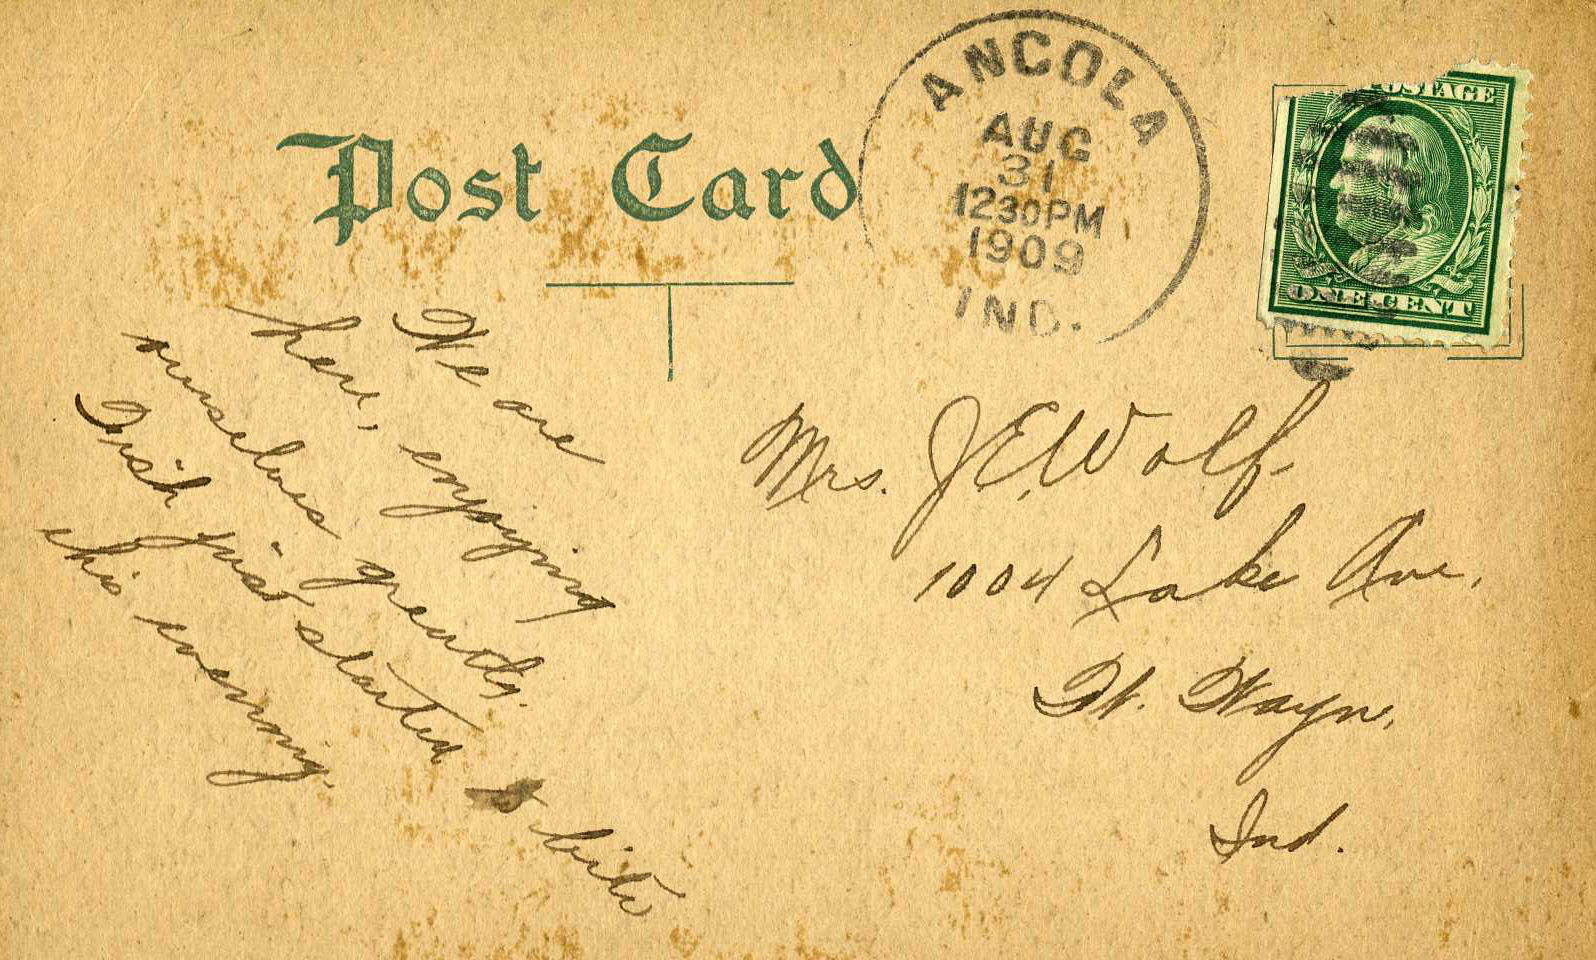 Post Card
ANGOLA
AUG
31
1230PM
1909
IND.
POSTAGE
ONE CENT
We are
here, enjoying
ourselves greatly.
Fish just started to bite
this evening.
Mrs. J.E. Wolf.
1004 Lake Ave.
Ft. Wayne,
Ind.